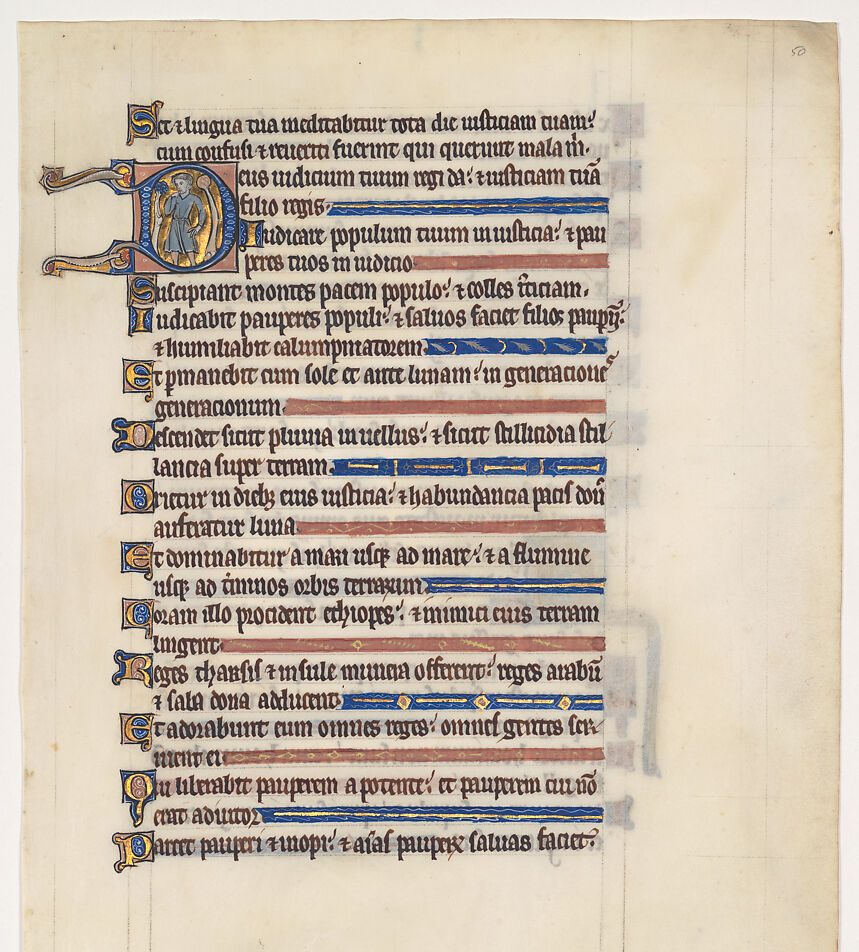 50
Set & lingua tua meditabitur tota die iusticiam tuam:
cum confusi & reueriti fuerint qui querunt mala m.
Deus iudicium tuum regi da: & iusticiam tuā
filio regis.
Iudicare populum tuum in iusticia: & pau
peres tuos in iudicio
Suscipiant montes pacem populo: & colles iticiam.
Iudicabit pauperes populi: & saluos faciet filios paupū:
& humiliabit calumpniatorem.
Et pmanebit cum sole et ante lunam: in generacione
generacionum.
Descendet sicut pluuia in uellus: & sicut stillicidia stil
lancia super terram.
Orietur in dieb; eius iusticia: & habundancia pacis don
auferatur luna.
Et dominabitur a mari usq; ad mare: & a flumine
usq; ad tminos orbis terrarum.
Coram illo procident ethiopes: & inimici eius terram
lingent.
Reges tharsis & insule munera offerent: reges arabū
& saba dona adducent.
Et adorabunt eum omnes reges: omnes gentes ser
uient ei.
Qui liberabit pauperem a potente: et pauperem cui nō
erat adiutor.
Parcet pauperi & inopi: & aīas pauperꝝ saluas faciet.